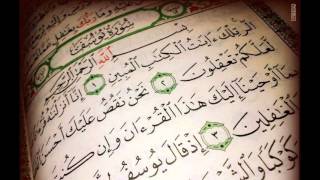 وَمَا رَبُّكَ
سُورَةُ يُوسُفَ
بِسْمِ اللَّهِ الرَّحْمَٰنِ الرَّحِيمِ
الٓر تِلْكَ ءَايَٰتُ الْكِتَٰبِ الْمُبِينِ ١ إِنَّا أَنزَلْنَٰهُ
لَّعَلَّكُمْ تَعْقِلُونَ ٢ نَحْنُ نَقُصُّ عَلَيْكَ أَحْسَنَ
بِمَا أَوْحَيْنَا إِلَيْكَ هَٰذَا الْقُرْءَانَ وَإِن كُنتَ
الْغَٰفِلِينَ ٣ إِذْ قَالَ يُوسُفُ
كَوْكَبًا وَالشَّمْسَ